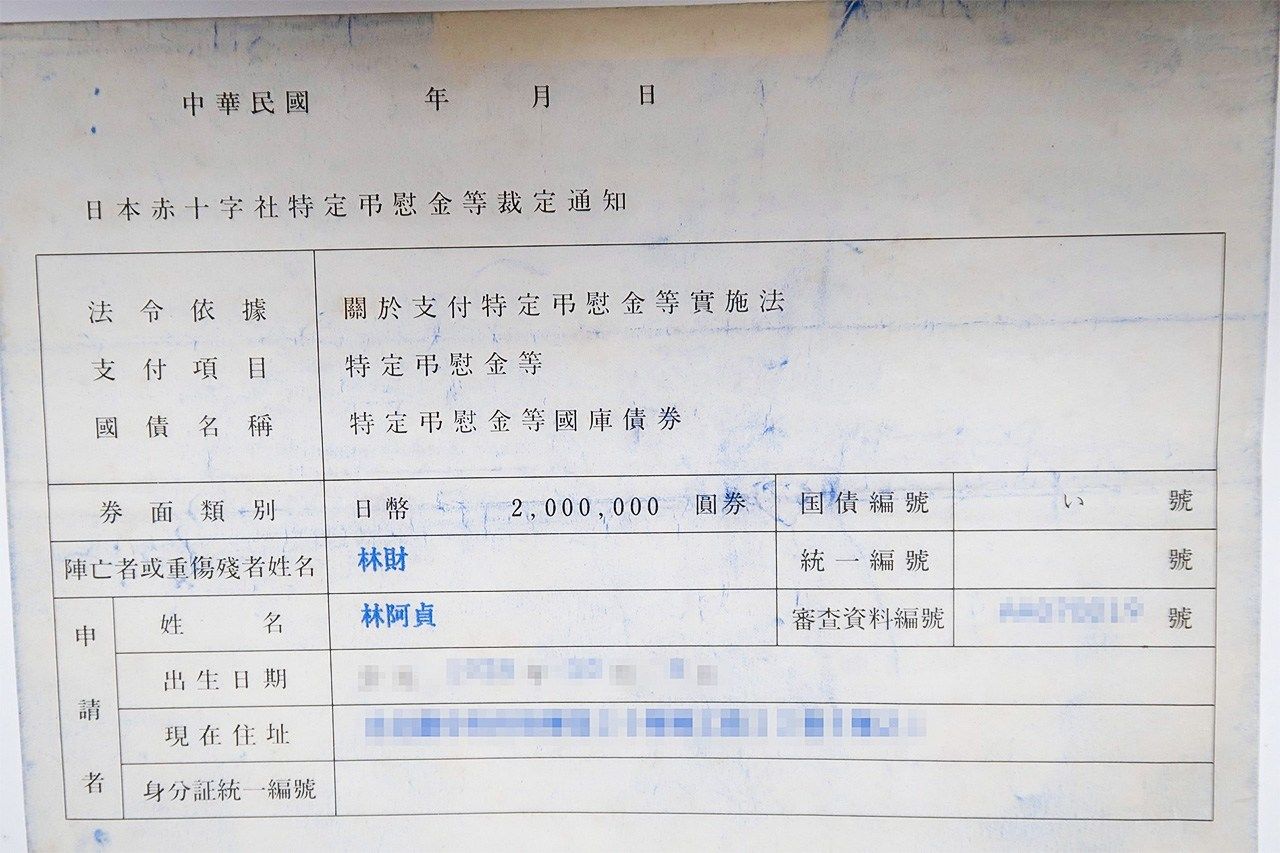 中華民國 年 月 日
日本赤十字社特定弔慰金等裁定通知
法令依據 關於支付特定弔慰金等實施法
支付項目 特定弔慰金等
國債名稱 特定弔慰金等國庫債券
券面類別 日幣 2,000,000 圓券 国債編號 い 號
陣亡者或重傷殘者姓名 林財 統一編號 號
申請者 姓名 林阿貞 審查資料編號 號
出生日期
現在住址
身分証統一編號